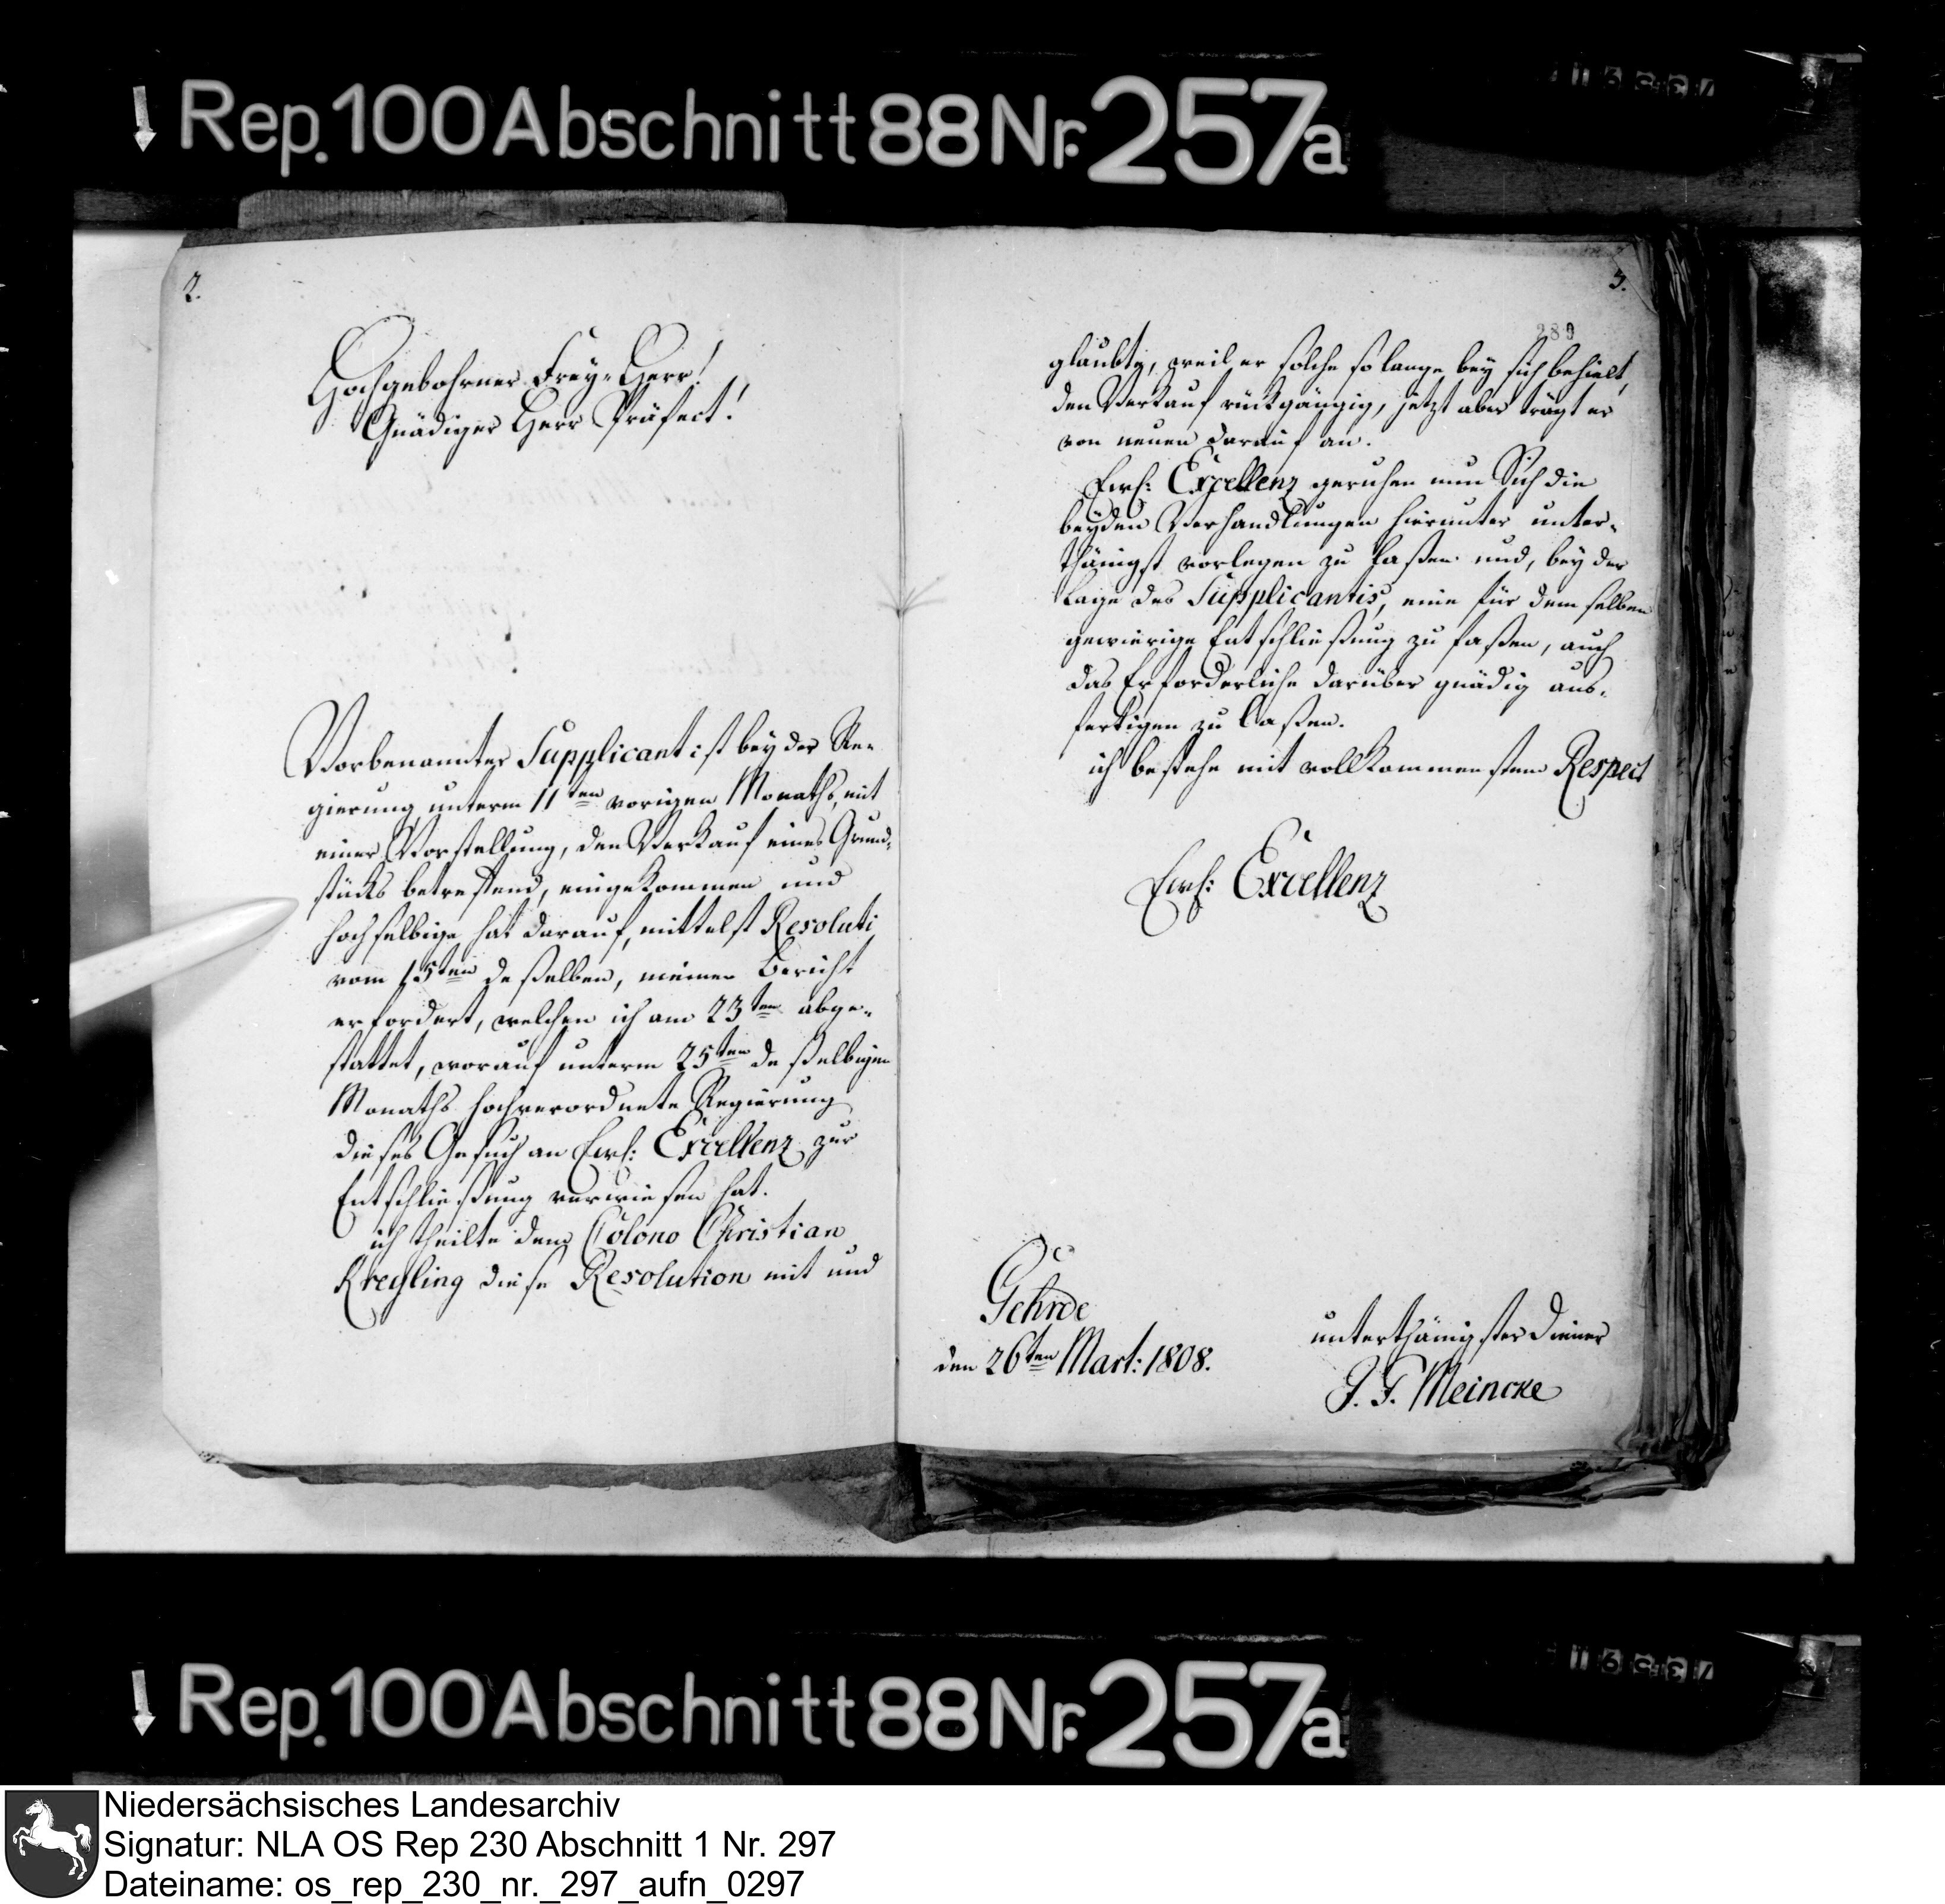 Rep. 100 Abschnitt 88 Nr. 257a
2.
Hochgebohrner Frey-Herr!
Gnädiger Herr Präfect!
Vorbenannter Supplicant ist bey der Re-
gierung unterm 11ten vorigen Monaths, mit
einer Vorstellung, den Verkauf eines Grund-
stücks betreffend, eingekommen und
hochselbige hat darauf, mittelst Resoluti
vom 15ten deßelben, meinen Bericht
erfordert, welchen ich am 23ten abge-
stattet, worauf unterm 25ten deßelbigen
Monaths hochverordnete Regierung
dieses Gesuch an Ewr: Excellenz zur
Entschließung verwiesen hat.
ich theilte dem Colono Christian
diese Resolution mit und
3.
289
glaubte, weil er solche so lange bey sich behielt,
den Verkauf rückgängig, jetzt aber trägt er
von neuen darauf an.
Ewr: Excellenz geruhen nun Sich die
beyden Verhandlungen hierunter unter-
thänigst vorlegen zu laßen und, bey der
Lage des Supplicantis, eine für dem selben
gewierige Entschließung zu faßen, auch
das Erforderliche darüber gnädig aus-
fertigen zu laßen.
ich bestehe mit vollkommenstem Respect
Ewr: Excellenz
Gehrde
den 26ten Mart: 1808.
unterthänigster Diener
J. F. Meincke
Rep. 100 Abschnitt 88 Nr. 257a
Niedersächsisches Landesarchiv
Signatur: NLA OS Rep 230 Abschnitt 1 Nr. 297
Dateiname: os_rep_230_nr._297_aufn_0297